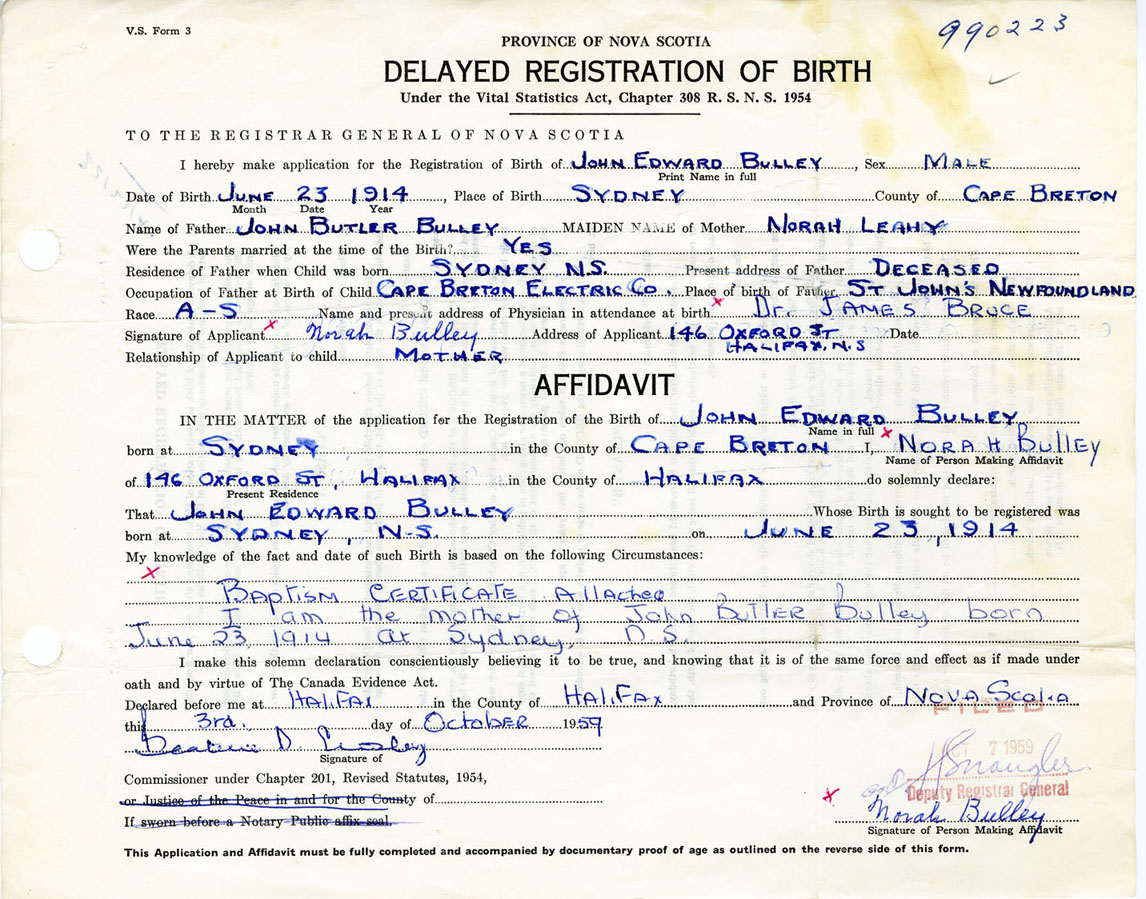 V.S. Form 3
990223
PROVINCE OF NOVA SCOTIA
DELAYED REGISTRATION OF BIRTH
Under the Vital Statistics Act, Chapter 308 R. S. N. S. 1954
TO THE REGISTRAR GENERAL OF NOVA SCOTIA
I hereby make application for the Registration of Birth of JOHN EDWARD BULLEY, Sex MALE
Print Name in full
Date of Birth JUNE 23 1914, Place of Birth SYDNEY County of CAPE BRETON
Month Date Year
Name of Father JOHN BUTLER BULLEY MAIDEN NAME of Mother NORAH LEAHY
Were the Parents married at the time of the Birth? YES
Residence of Father when Child was born SYDNEY N.S. Present address of Father DECEASED
Occupation of Father at Birth of Child CAPE BRETON ELECTRIC CO. Place of birth of Father ST JOHN'S NEWFOUNDLAND
Race A-S Name and present address of Physician in attendance at birth X Dr. JAMES BRUCE
Signature of Applicant X Norah Bulley Address of Applicant 146 OXFORD ST Date
HALIFAX, N.S
Relationship of Applicant to child MOTHER
AFFIDAVIT
IN THE MATTER of the application for the Registration of the Birth of JOHN EDWARD BULLEY
Name in full
born at SYDNEY in the County of CAPE BRETON I, X NORAH BULLEY
Name of Person Making Affidavit
of 146 OXFORD ST, HALIFAX in the County of HALIFAX do solemnly declare:
Present Residence
That JOHN EDWARD BULLEY Whose Birth is sought to be registered was
born at SYDNEY, N.S. on JUNE 23, 1914
My knowledge of the fact and date of such Birth is based on the following Circumstances:
X
Baptism CERTIFICATE Attached
I am the mother of John BUTLER Bulley born
June 23, 1914 at Sydney, N.S.
I make this solemn declaration conscientiously believing it to be true, and knowing that it is of the same force and effect as if made under
oath and by virtue of The Canada Evidence Act.
Declared before me at HALIFAX in the County of HALIFAX and Province of NOVA Scotia
FILED
this 3rd. day of October 1959
Beatrice D.
Signature of
OCT 7 1959
Commissioner under Chapter 201, Revised Statutes, 1954,
Deputy Registrar General
or Justice of the Peace in and for the County of
X Norah Bulley
If sworn before a Notary Public affix seal.
Signature of Person Making Affidavit
This Application and Affidavit must be fully completed and accompanied by documentary proof of age as outlined on the reverse side of this form.